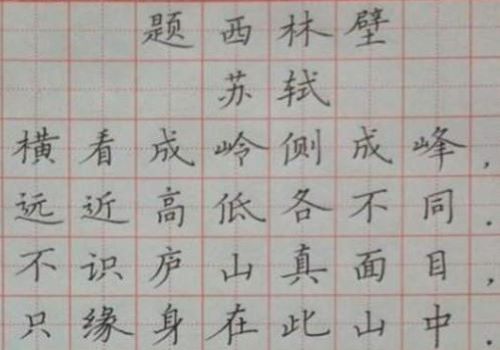 题西林壁
苏轼
横看成岭侧成峰,
远近高低各不同.
不识庐山真面目,
只缘身在此山中.